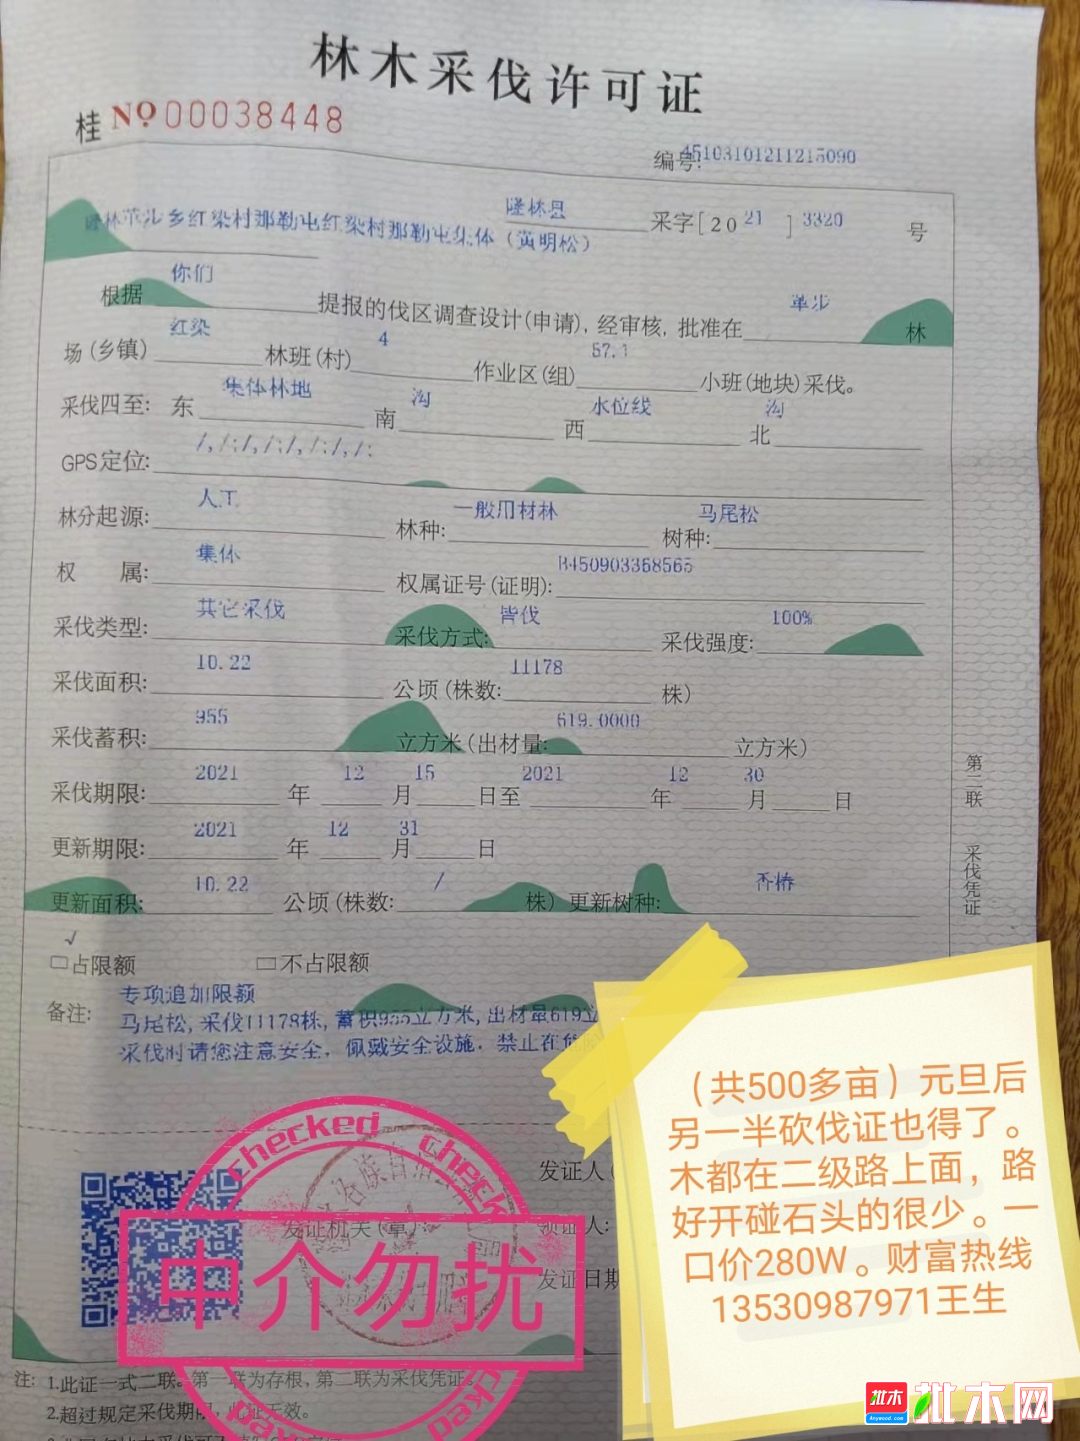 林木采伐许可证
桂 NO 00038448
编号: 451031012112​15090
隆林县 采字[20 21 ] 3320 号
隆林革步乡红染村那勒屯红染村那勒屯集体（黄明松）
根据 你们 提报的伐区调查设计(申请), 经审核, 批准在 革步 林
场(乡镇) 红染 林班(村) 4 作业区(组) 57.1 小班(地块)采伐。
采伐四至: 东 集体林地 南 沟 西 水位线 北 沟
GPS定位: /,/:/,/:/,/:/,/:
林分起源: 人工 林种: 一般用材林 树种: 马尾松
权 属: 集体 权属证号(证明): B450903368565
采伐类型: 其它采伐 采伐方式: 皆伐 采伐强度: 100%
采伐面积: 10.22 公顷(株数: 11178 株)
采伐蓄积: 955 立方米(出材量: 619.0000 立方米)
采伐期限: 2021 年 12 月 15 日至 2021 年 12 月 30 日
更新期限: 2021 年 12 月 31 日
更新面积: 10.22 公顷(株数: / 株) 更新树种: 香椿
√
□占限额 □不占限额
备注: 专项追加限额
马尾松, 采伐11178株, 蓄积955立方米, 出材量619立
采伐时请您注意安全, 佩戴安全设施, 禁止在
第二联 采伐凭证
（共500多亩）元旦后
另一半砍伐证也得了。
木都在二级路上面，路
好开碰石头的很少。一
口价280W。财富热线
13530987971王生
checked checked
发证人(
发证机关(章): 领证人:
发证日期
中介勿扰
checked
注: 1.此证一式二联。第一联为存根, 第二联为采伐凭证。
2.超过规定采伐期限, 此证无效。
批木 Anywood.com 批木网